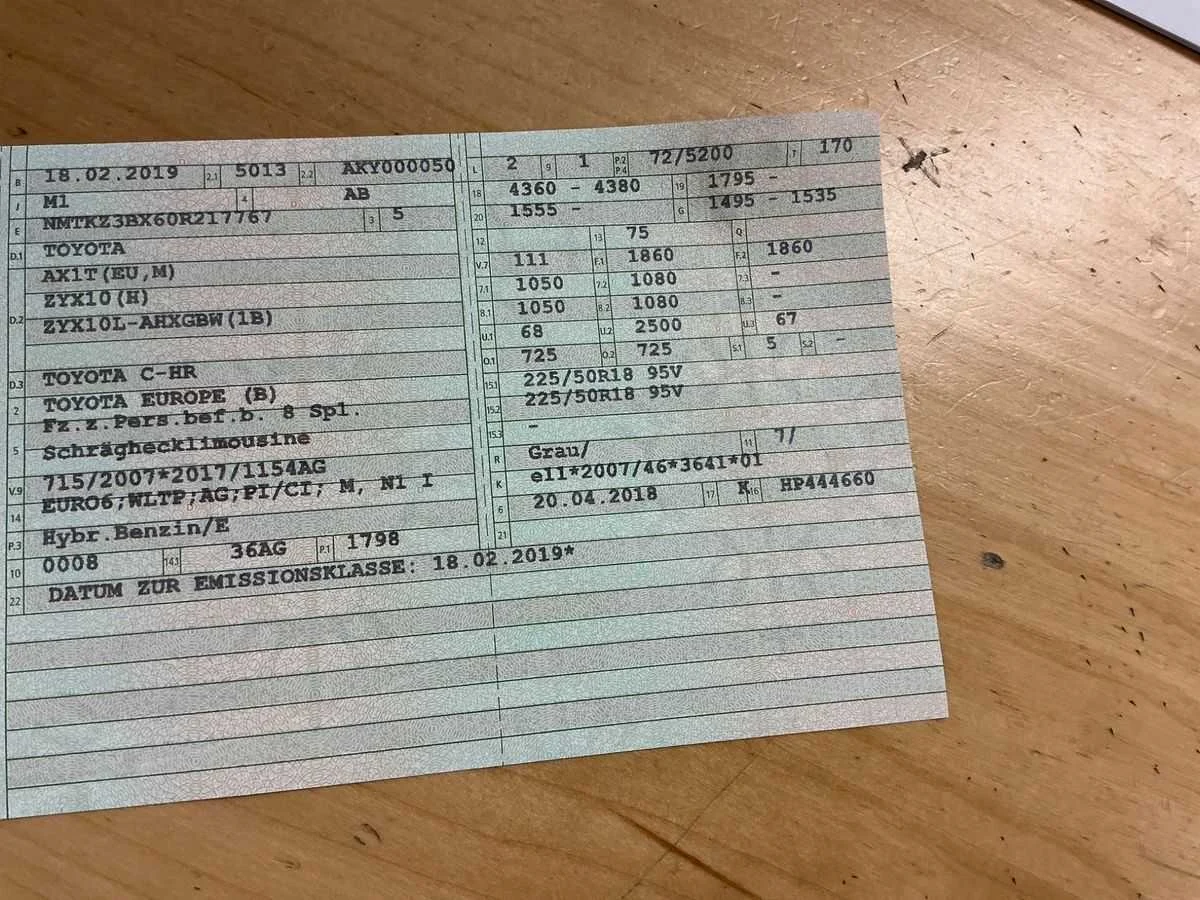 B 18.02.2019 2.1 5013 2.2 AKY000050
J M1 4 AB
E NMTKZ3BX60R217767 3 5
D.1 TOYOTA
D.2 AX1T(EU,M)
ZYX10(H)
ZYX10L-AHXGBW(1B)
D.3 TOYOTA C-HR
2 TOYOTA EUROPE (B)
5 Fz.z.Pers.bef.b. 8 Spl.
Schräghecklimousine
V.9 715/2007*2017/1154AG
14 EURO6;WLTP;AG;PI/CI; M, N1 I
P.3 Hybr.Benzin/E
10 0008 14.1 36AG P.1 1798
22 DATUM ZUR EMISSIONSKLASSE: 18.02.2019*
L 2 9 1 P.2 P.4 72/5200 T 170
18 4360 - 4380 19 1795 -
20 1555 - G 1495 - 1535
12 13 75 Q
V.7 111 F.1 1860 F.2 1860
7.1 1050 7.2 1080 7.3 -
8.1 1050 8.2 1080 8.3 -
U.1 68 U.2 2500 U.3 67
O.1 725 O.2 725 S.1 5 S.2 -
15.1 225/50R18 95V
15.2 225/50R18 95V
15.3 -
R Grau/ 11 7/
K e11*2007/46*3641*01
6 20.04.2018 17 K 16 HP444660
21